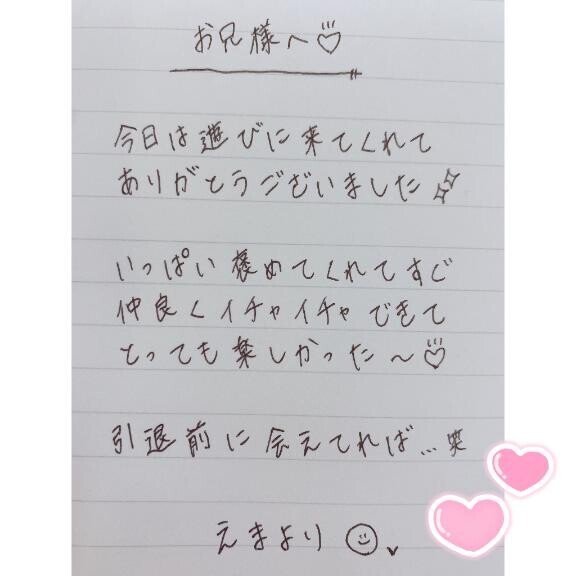 お兄様へ♡
今日は遊びに来てくれて
ありがとうございました✨
いっぱい褒めてくれてすぐ
仲良くイチャイチャできて
とっても楽しかった〜♡
引退前に会えてれば…笑
えまより☺